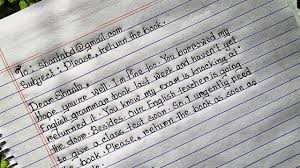 To: Shantabd@gmail.com
Subject: Please, return the book.
Dear Shantu,
Hope you're well. I'm fine too. You borrowed my
English grammar book last week and haven't yet
returned it. You know my exam is knocking at
the door. Besides, our English teacher is going
to give a class test soon. So I urgently need
my book. Please, return the book as soon as